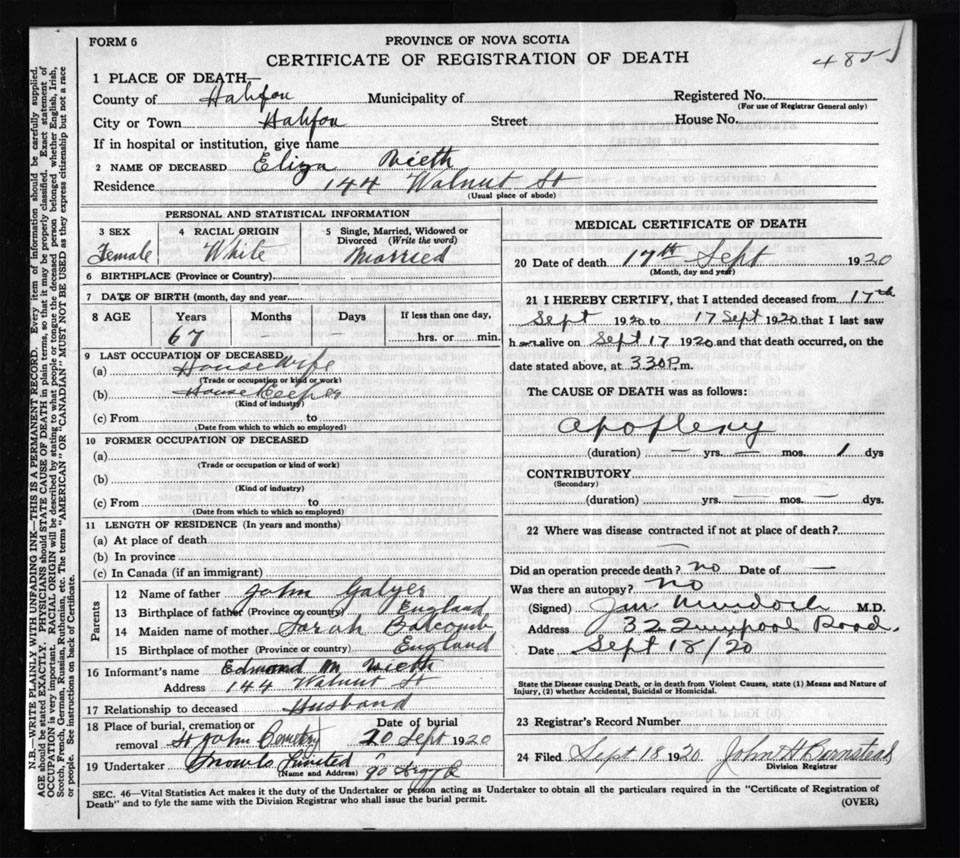 FORM 6
PROVINCE OF NOVA SCOTIA
CERTIFICATE OF REGISTRATION OF DEATH
485
1 PLACE OF DEATH—
County of Halifax Municipality of Registered No.
(For use of Registrar General only)
City or Town Halifax Street House No.
If in hospital or institution, give name
2 NAME OF DECEASED Eliza Vieth
Residence 144 Walnut St
(Usual place of abode)
PERSONAL AND STATISTICAL INFORMATION
3 SEX 4 RACIAL ORIGIN 5 Single, Married, Widowed or
Divorced (Write the word)
Female White Married
6 BIRTHPLACE (Province or Country)
7 DATE OF BIRTH (month, day and year
8 AGE Years Months Days If less than one day,
67 — — hrs. or min.
9 LAST OCCUPATION OF DECEASED
(a) House Wife
(Trade or occupation or kind or work)
(b) House Keeper
(Kind of industry)
(c) From to
(Date from which to which so employed)
10 FORMER OCCUPATION OF DECEASED
(a)
(Trade or occupation or kind of work)
(b)
(Kind of industry)
(c) From to
(Date from which to which so employed)
11 LENGTH OF RESIDENCE (In years and months)
(a) At place of death
(b) In province
(c) In Canada (if an immigrant)
Parents
12 Name of father John Galyer
13 Birthplace of father (Province or country) England
14 Maiden name of mother Sarah Balcomb
15 Birthplace of mother (Province or country) England
16 Informant's name Edmond M Vieth
Address 144 Walnut St
17 Relationship to deceased Husband
18 Place of burial, cremation or Date of burial
removal St John Cemetery 20 Sept 1920
19 Undertaker Snows Limited 90 Argyle
(Name and Address)
MEDICAL CERTIFICATE OF DEATH
20 Date of death 17th Sept 1920
(Month, day and year)
21 I HEREBY CERTIFY, that I attended deceased from 17th
Sept 1920 to 17 Sept 1920 that I last saw
h alive on Sept 17 1920 and that death occurred, on the
date stated above, at 3 30 P. m.
The CAUSE OF DEATH was as follows:
apoplexy
(duration) — yrs. — mos. 1 dys
CONTRIBUTORY
(Secondary)
(duration) — yrs. — mos. — dys.
22 Where was disease contracted if not at place of death?
—
Did an operation precede death? no Date of —
Was there an autopsy? no
(Signed) Jan Murdoch M.D.
Address 322 Quinpool Road
Date Sept 18/20
State the Disease causing Death, or in death from Violent Causes, state (1) Means and Nature of
Injury, (2) whether Accidental, Suicidal or Homicidal.
23 Registrar's Record Number
24 Filed Sept 18 1920 John H Barnstead
Division Registrar
SEC. 46—Vital Statistics Act makes it the duty of the Undertaker or person acting as Undertaker to obtain all the particulars required in the "Certificate of Registration of
Death" and to fyle the same with the Division Registrar who shall issue the burial permit.
(OVER)
N.B.—WRITE PLAINLY WITH UNFADING INK—THIS IS A PERMANENT RECORD. Every item of information should be carefully supplied.
AGE should be stated EXACTLY. PHYSICIANS should STATE CAUSE OF DEATH in plain terms, so that it may be properly classified. Exact statement of
OCCUPATION is very important. RACIAL ORIGIN will be described by stating to what people or tongue the deceased person belonged whether English, Irish,
Scotch, French, German, Russian, Ruthenian, etc. The terms "AMERICAN" or "CANADIAN" MUST NOT BE USED as they express citizenship but not a race
or people. See instructions on back of Certificate.